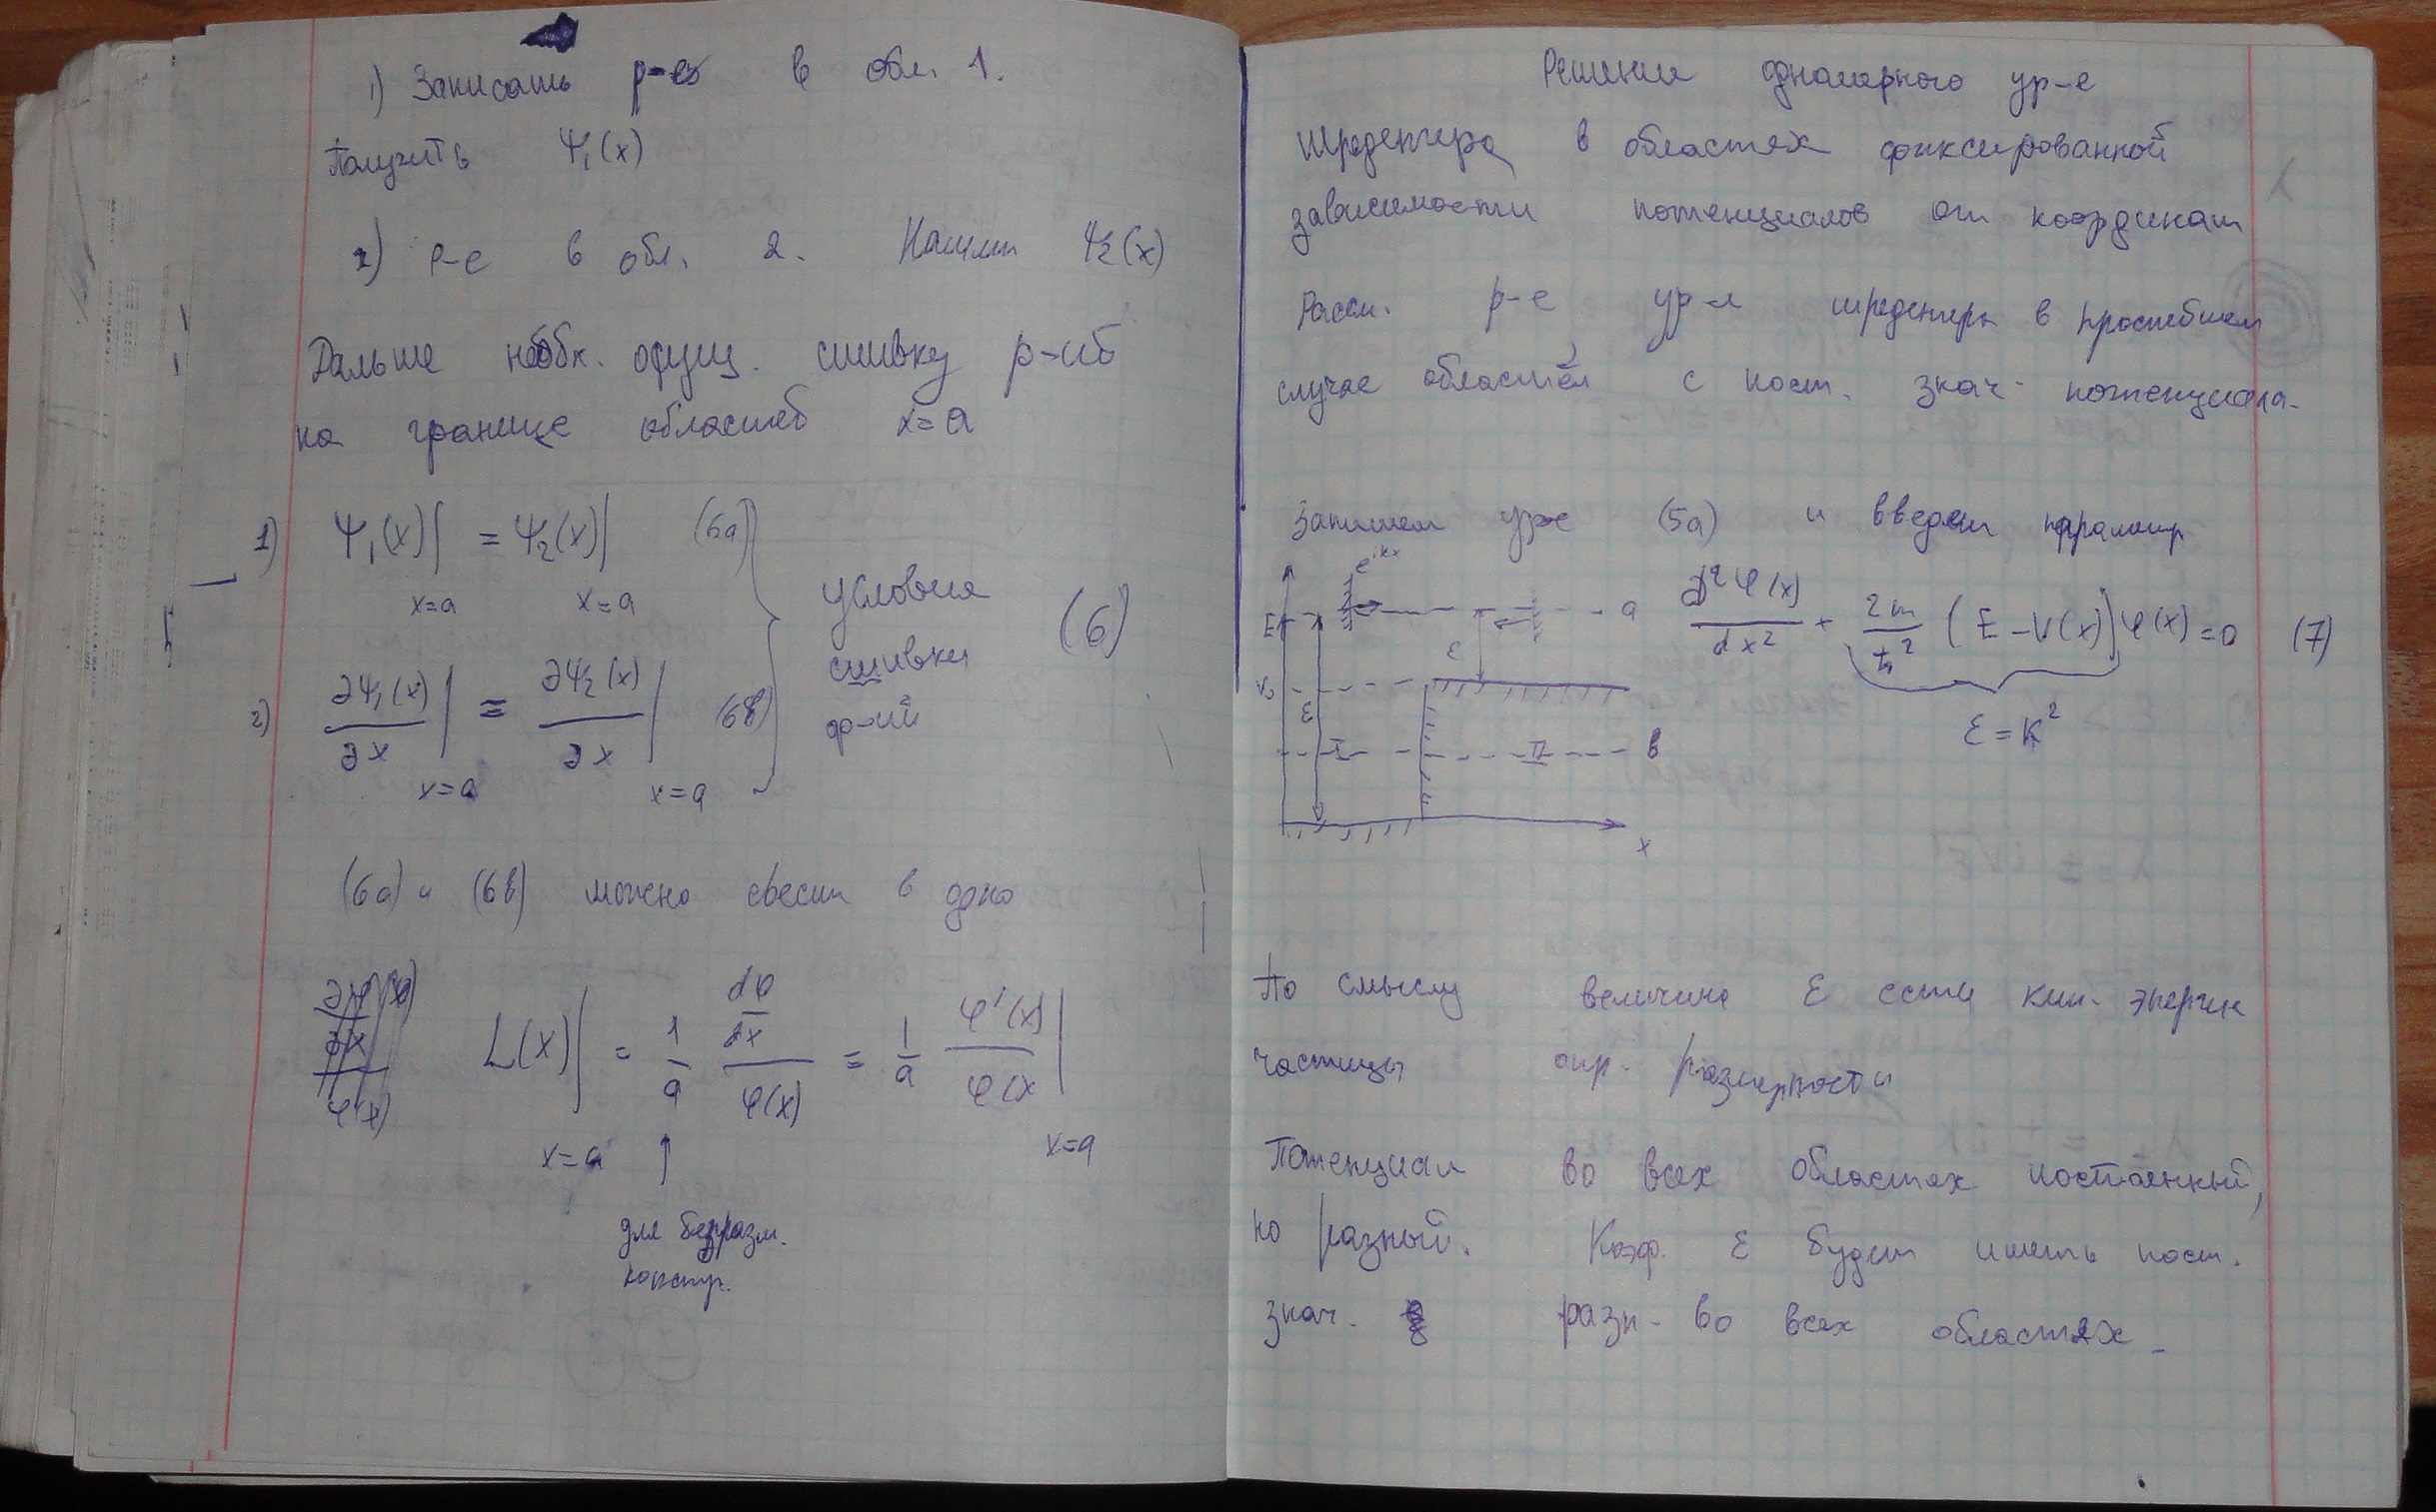 1) Записать р-е в обл. 1.
Получить Ψ₁(x)
2) р-е в обл. 2. Найти Ψ₂(x)
Дальше необх. осущ. сшивку р-ий
на границе областей x=a
1) Ψ₁(x)|x=a = Ψ₂(x)|x=a (6a)
2) ∂Ψ₁(x)/∂x|x=a = ∂Ψ₂(x)/∂x|x=a (6в)
условия
сшивки
ф-ий
(6)
(6a) и (6в) можно свести в одно
L(x)|x=a = 1/a (dφ/dx)/φ(x) = 1/a φ'(x)/φ(x|x=a
для безразм.
констр.
Решение одномерного ур-е
Шреденгера в областях фиксированной
зависимости потенциалов от координат
Рассм. р-е ур-я шреденгера в простейшем
случае областей с пост. знач. потенциала.
Запишем ур-е (5a) и введем параметр
e^ikx
E
a
ε
V₀
ε
I
II
в
x
d²φ(x)/dx² + 2m/ħ² (E-V(x))φ(x)=0 (7)
ε=k²
По смыслу величина ε есть кин. энергия
частицы опр. размерности
Потенциал во всех областях постоянный,
но разный. Коэф. ε будет иметь пост.
знач. разн. во всех областях.